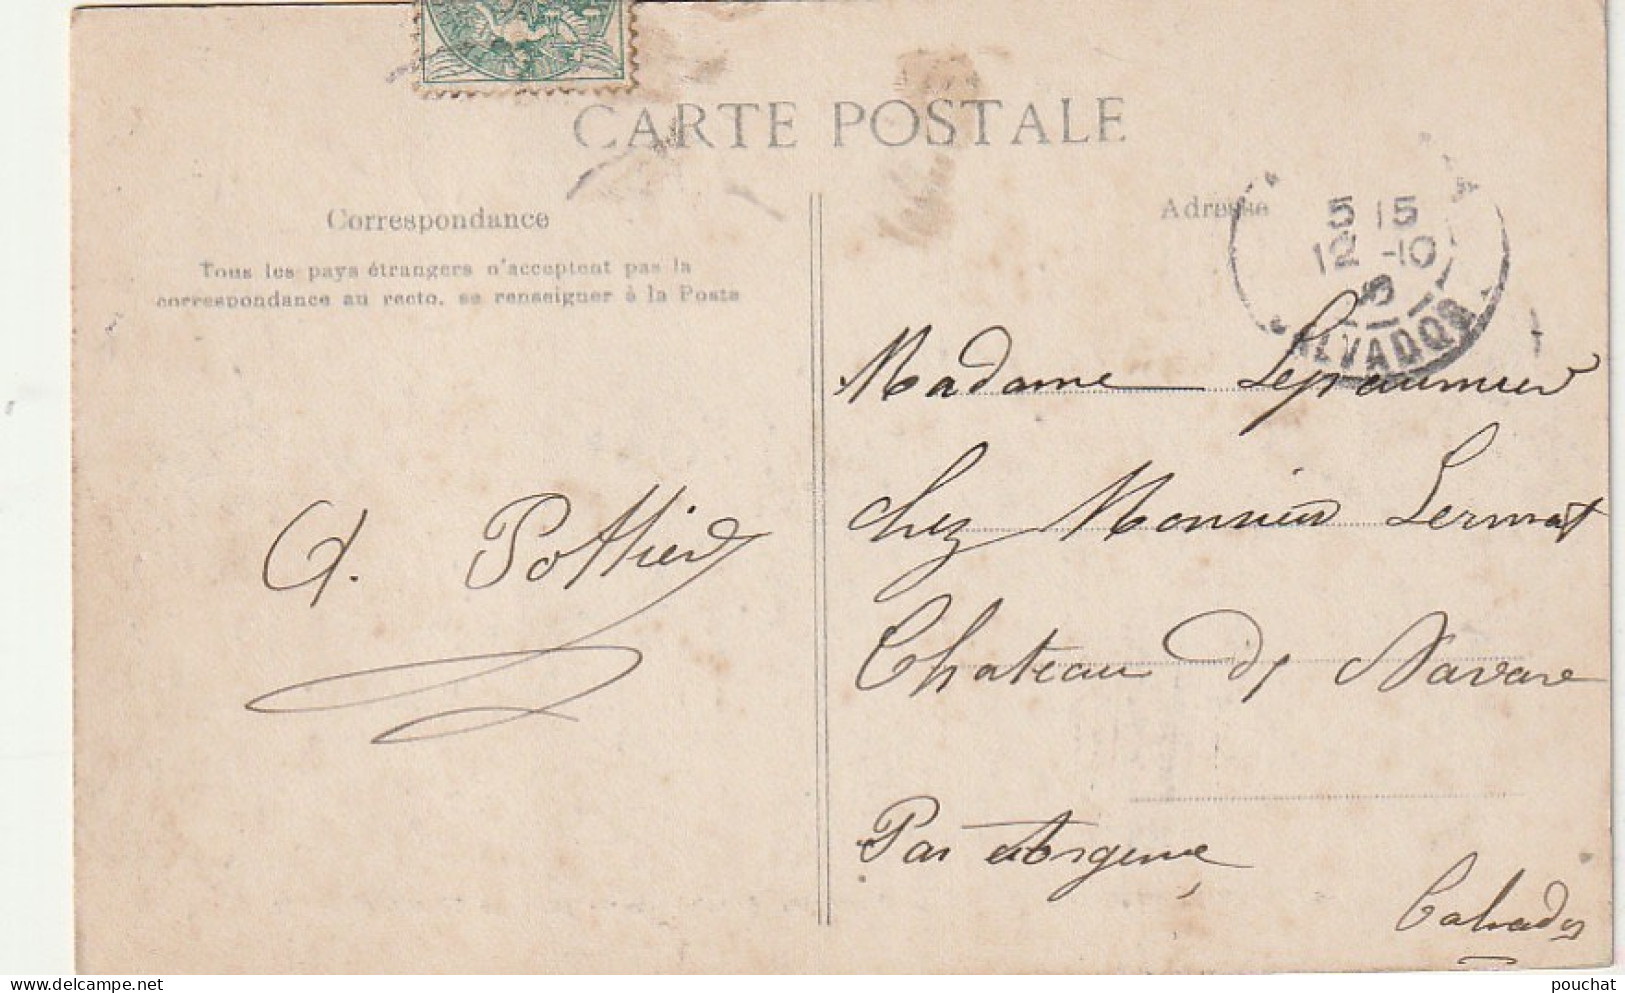 CARTE POSTALE
Correspondance
Tous les pays étrangers n'acceptent pas la
correspondance au recto, se renseigner à la Poste
Adresse
5 15
12 -10
ALVADOS
Madame Lepaumier
chez Monsieur Lermat
Chateau de Navare
Par Argence
Calvados
A. Pottier
delcampe.net
pouchat